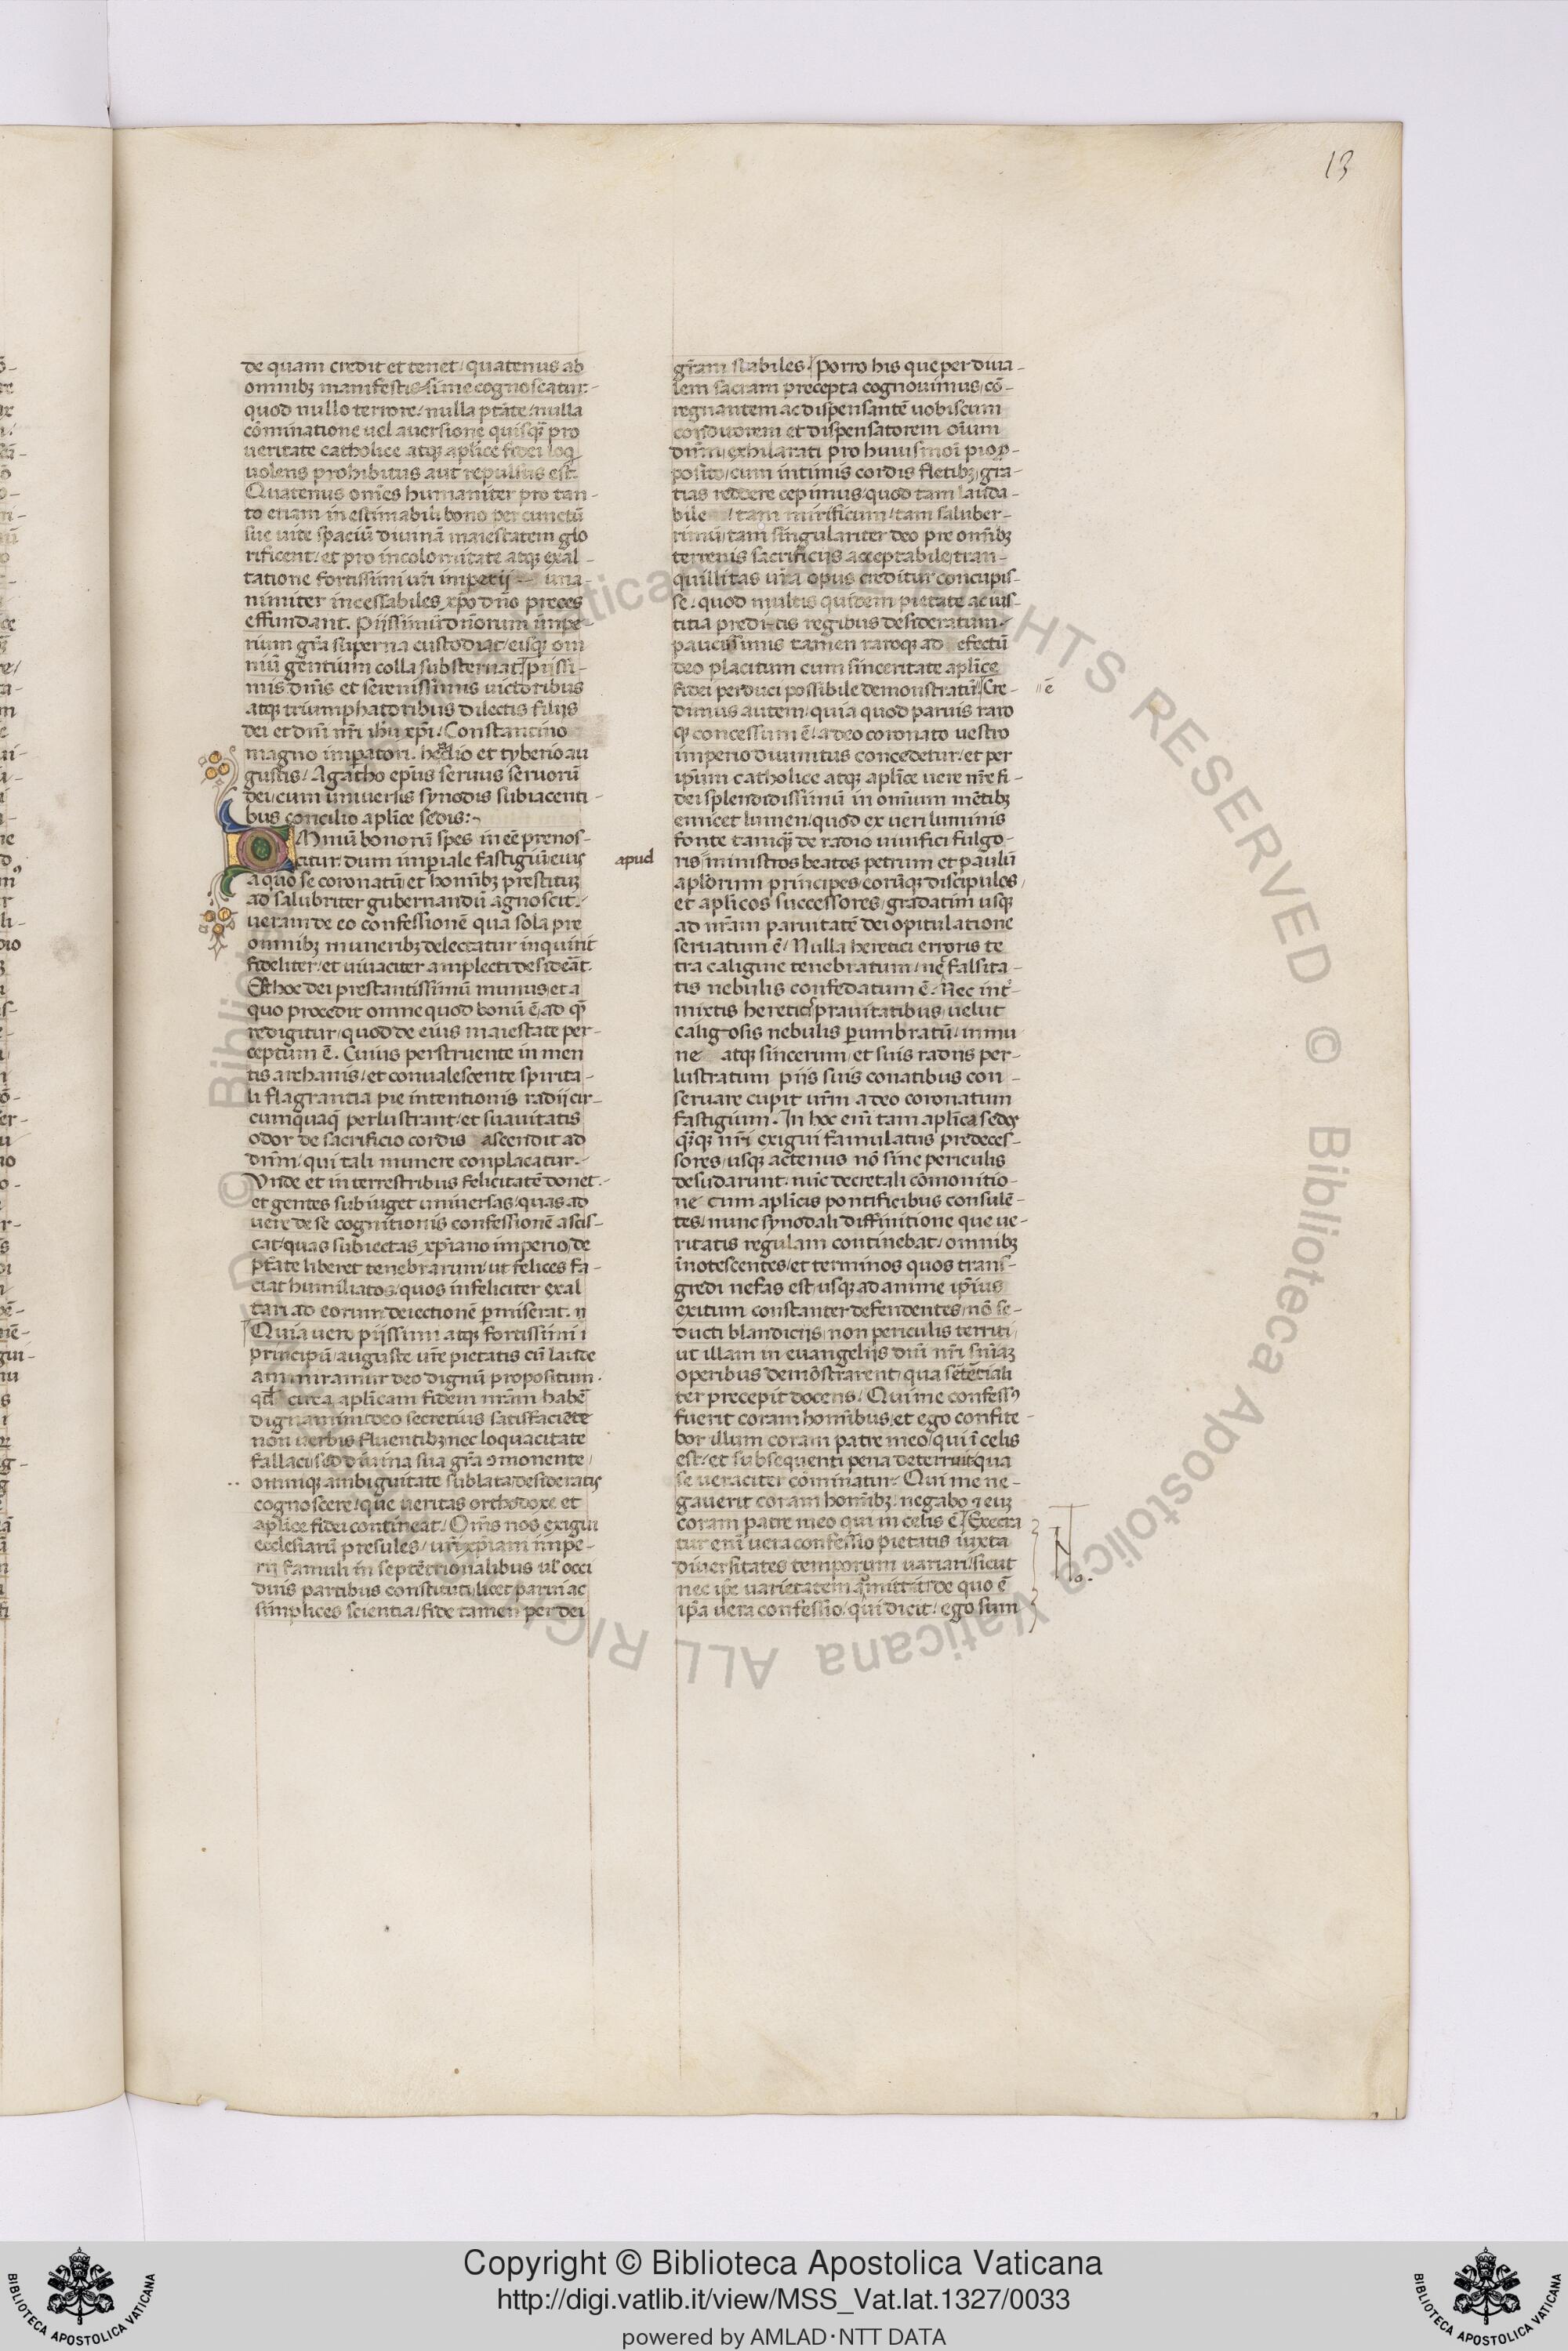 13
de quam credit et tenet / quatenus ab
omnibꝫ manifestissime cognoscatur.
quod nullo terrore / nulla ptāte / nulla
cōminatione uel auersione quisq̄ pro
ueritate catholice atqꝫ aplice fidei loq
uolens prohibitus aut repulsus est.
Quatenus om̄es humaniter pro tan-
to etiam inestimabili bono per cunctū
sue uite spaciū diuinā maiestatem glo
rificent / et pro incolomitate atqꝫ exal-
tatione fortissimi ur̄i imperij una-
nimiter incessabiles xp̄o dn̄o preces
effundant. Piissimū dn̄orum impe-
rium gr̄a superna custodiat / eisqꝫ om
niū gentium colla substernat piissi-
mis dn̄is et serenissimis uictoribus
atqꝫ triumphatoribus dilectis filijs
dei et dn̄i nr̄i ihu xp̄i / Constantino
magno imperatori. heraclio et tyberio au
gustis / Agatho ep̄us seruus seruorū
dei / cum uniuersis synodis subiacenti-
bus concilio aplice sedis:
Omniū bonorū spes in eē prenos-
citur / dum imperiale fastigiū eius
a quo se coronatū et hominibꝫ prestitūꝫ
ad salubriter gubernandū agnoscit.
ueram de eo confessionē qua sola pre
omnibꝫ muneribꝫ delectatur inquirit
fideliter / et uiuaciter amplecti desiderāt.
Est hoc dei prestantissimū munus / et a
quo procedit omne quod bonū ē / ad q̄
redigitur / quod de eius maiestate per-
ceptum ē. Cuius perstruente in men
tis archanis / et conualescente spirita-
li flagrantia pie intentionis radij cir-
cumquaq̄ perlustrant / et suauitatis
odor de sacrificio cordis ascendit ad
dn̄m / qui tali munere conplacatur.
Vnde et in terrestribus felicitatē donet.
et gentes subiuget uniuersas / quas ad
uere de se cognitionis confessionē ascis-
cat / quas subiectas xp̄iano imperio / de
ptāte liberet tenebrarum / ut felices fa-
ciat humiliatos / quos infeliciter exal
tari ad eorum deiectionē ꝑmiserat.
Quia uero piissimi atqꝫ fortissimi
principū / auguste ur̄e pietatis cū laude
ammiramur deo dignū propositum.
qd̄ circa aplicam fidem nr̄am habē
dignamini deo secretius satisfaciēte
non uerbis fluentibꝫ nec loquacitate
fallaci / sed diuina sua gr̄a ꝯmonente /
omniqꝫ ambiguitate sublata desideratis
cognoscere / que ueritas orthodoxe et
aplice fidei contineat / Om̄s nos exigui
ecclesiarū presules / ur̄i xp̄iani impe-
rij famuli in septētrionalibus ul occi
duis partibus constituti / licet parui ac
simplices scientia / fide tamen per dei
apud
gr̄am stabiles. Porro his que per diua-
lem sacram precepta cognouimus / cō-
regnantem ac dispensantē uobiscum
conditorem et dispensatorem oīum
dn̄m / exhilarati pro huiusmoi pio ꝓ-
posito / cum intimis cordis fletibꝫ / gra-
tias reddere cepimus / quod tam lauda-
bile / tam mirificum / tam saluber-
rimū / tam singulariter deo pre omībꝫ
terrenis sacrificijs acceptabile / tran-
quillitas ur̄a opus creditur concupis-
se. quod multis quidem pietate ac ius-
titia preditis regibus desideratum.
paucissimis tamen raroqꝫ ad efectū
deo placitum cum sinceritate aplice
fidei perduci possibile demonstratū / Cre- ē
dimus autem / quia quod paruis raro
qꝫ concessum ē / a deo coronato uestro
imperio diuinitus concedetur / et per
ip̄um catholice atqꝫ aplice uere nr̄e fi-
dei splendidissimū in omnium mētibꝫ
emicet lumen / quod ex ueri luminis
fonte tamq̄ de radio uiuifici fulgo-
ris / ministros beatos petrum et paulū
aplorum principes / eorūqꝫ discipulos /
et aplicos successores / gradatim usqꝫ
ad nr̄am paruitatē dei opitulatione
seruatum ē / Nulla heretici erroris te
tra caligine tenebratum / nec falsita-
tis nebulis confedatum ē. Nec int̄-
mixtis hereticis prauitatibus / uelut
caligosis nebulis ꝑumbratū / inmu
ne atqꝫ sincerum / et suis radiis per-
lustratum piis suis conatibus con-
seruare cupit ur̄m a deo coronatum
fastigium. In hoc eni tam aplica sedes
q̄qꝫ nr̄i exigui famulatus predeces-
sores / usqꝫ actenus nō sine periculis
desudarunt. nūc decretali cōmonitio-
ne cum aplicis pontificibus consulē-
tes / nunc synodali diffinitione que ue-
ritatis regulam continebat / omnibꝫ
inotescentes / et terminos quos trans-
gredi nefas est / usqꝫ ad anime ip̄ius
exitum constanter defendentes / nō se-
ducti blandicijs / non periculis territi /
ut illam in euangelijs dn̄i nr̄i sn̄iaꝫ
operibus demōstrarent / qua sētētiali
ter precepit docens / Qui me confessꝰ
fuerit coram hominibus / et ego confite-
bor illum coram patre meo / qui ī celis
est / et subsequenti pena deterruit / qua
se ueraciter cōminatur / Qui me ne-
gauerit coram hominibꝫ / negabo ⁊ euꝫ
coram patre meo qui in celis ē / Execra
tur eni uera confessio pietatis iuxta
diuersitates temporum uariari / sicut
nec ip̄e uarietatem admittit / de quo ē
ip̄a uera confessio / qui dicit / ego sum
No.
Copyright © Biblioteca Apostolica Vaticana
http://digi.vatlib.it/view/MSS_Vat.lat.1327/0033
powered by AMLAD·NTT DATA
BIBLIOTECA APOSTOLICA VATICANA
BIBLIOTECA APOSTOLICA VATICANA